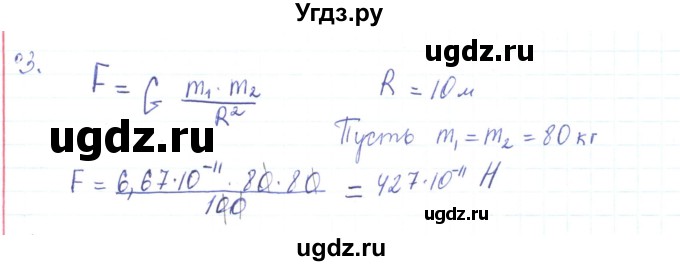 Угдз.ру
ugdz.ru
№3.
F = G m₁·m₂ / R²
R = 10 м
ugdz.ru
ugdz.ru
Пусть m₁ = m₂ = 80 кг
F = 6,67·10⁻¹¹·80·80 / 100 = 427·10⁻¹¹ Н
ugdz.ru
ugdz.ru
ugdz.ru